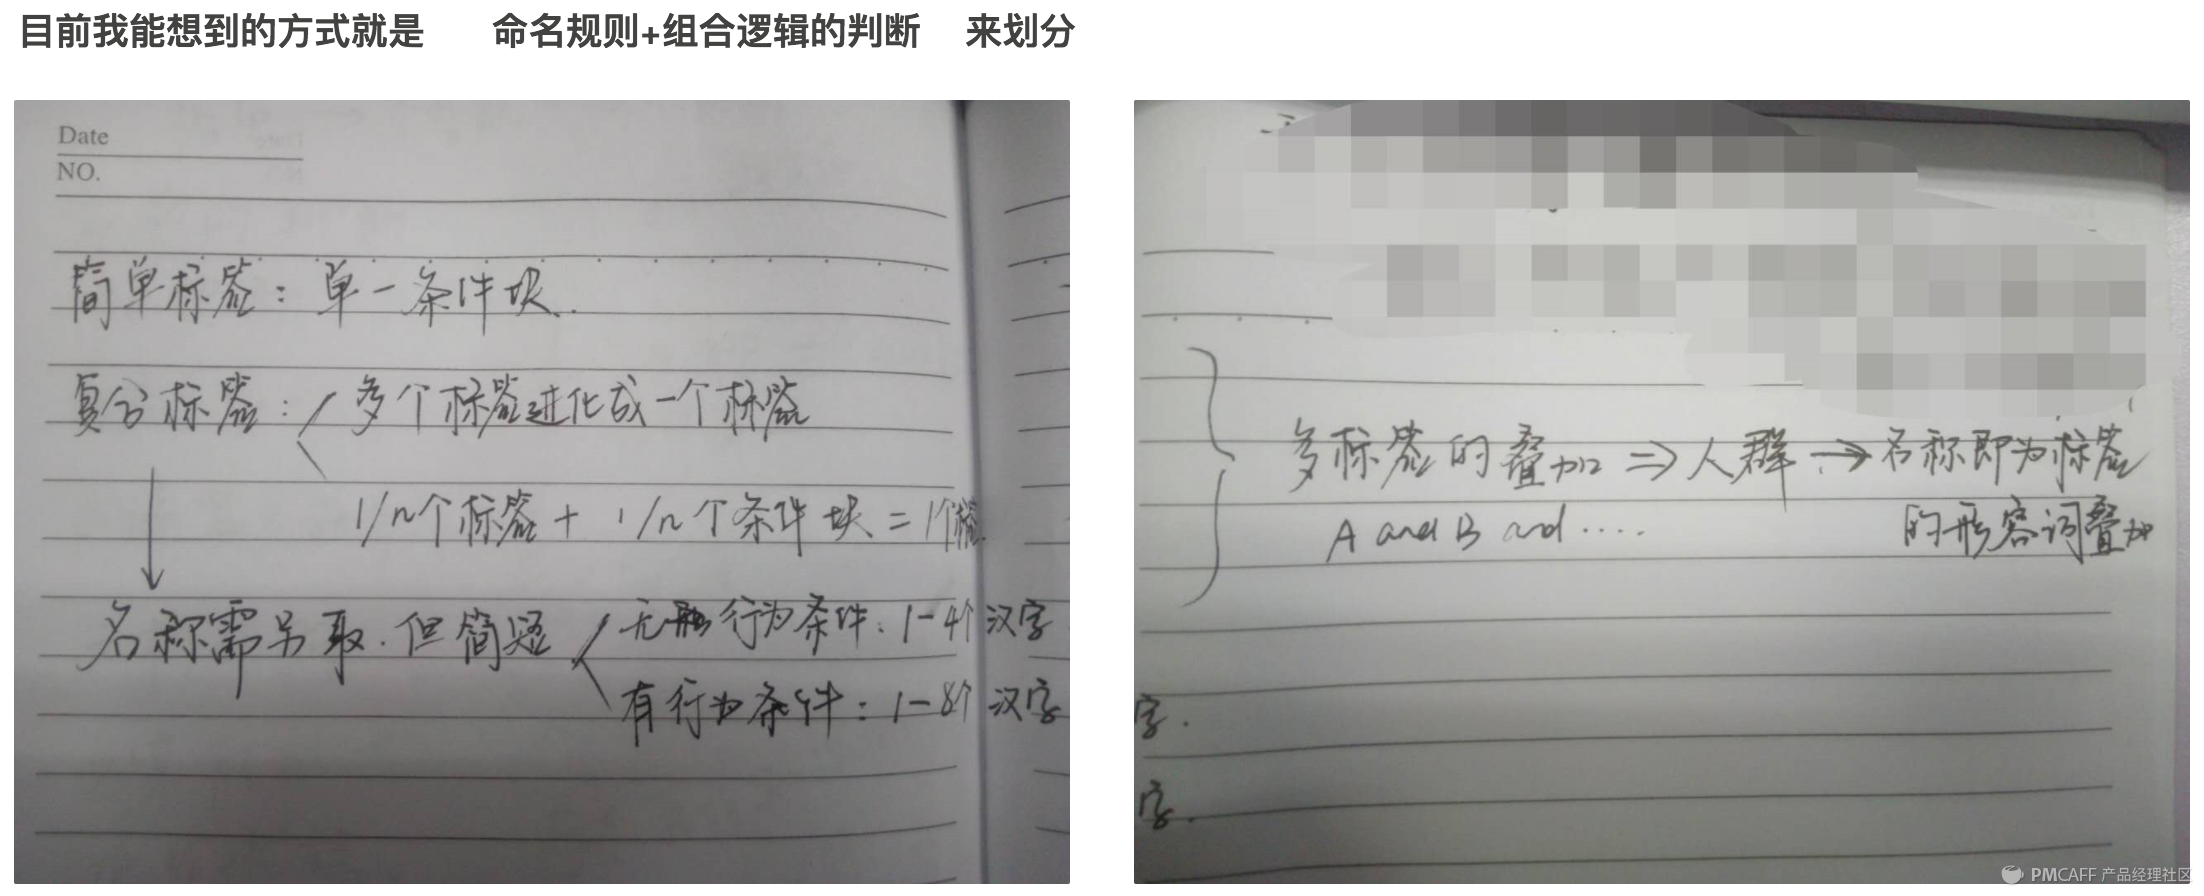 目前我能想到的方式就是 命名规则+组合逻辑的判断 来划分
Date
NO.
简单标签：单一条件块.
复合标签：多个标签进化成一个标签
1/n个标签 + 1/n个条件块 = 1个标签
名称需另取.但简短
无行为条件：1-4个汉字
有行为条件：1-8个汉字
多标签的叠加 => 人群 → 名称即为标签
A and B and ····
的形容词叠加
字.
字.
PMCAFF 产品经理社区